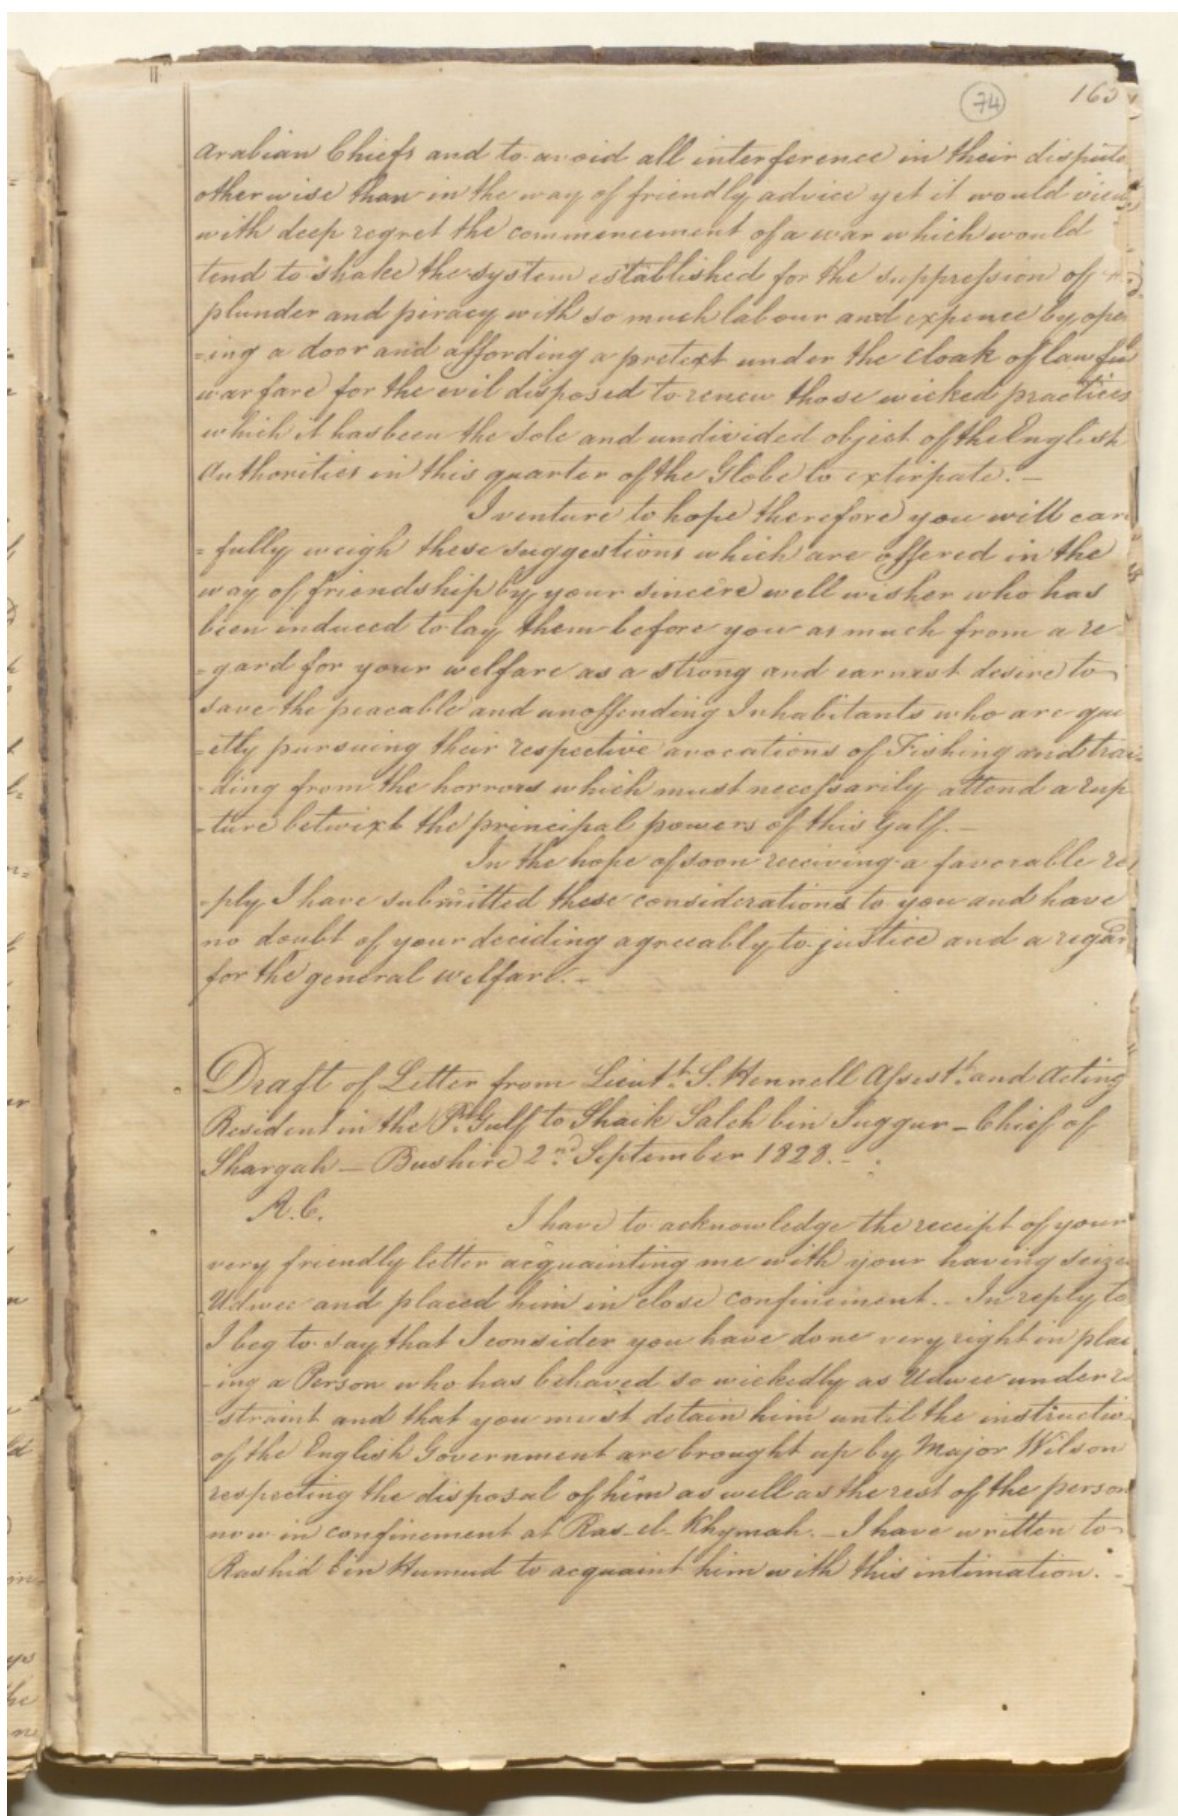 74
Arabian Chiefs and to avoid all interference in their dispute
otherwise than in the way of friendly advice yet it would view
with deep regret the commencement of a war which would
tend to shake the system established for the suppression of
plunder and piracy with so much labour and expence by ope
=ing a door and affording a pretext under the cloak of lawfu
warfare for the evil disposed to renew those wicked practices
which it has been the sole and undivided object of the English
Authorities in this quarter of the Globe to extirpate. -
I venture to hope therefore you will car
=fully weigh these suggestions which are offered in the
way of friendship by your sincere well wisher who has
been induced to lay them before you as much from a re
=gard for your welfare as a strong and earnest desire to
save the peacable and unoffending Inhabitants who are qui
=etly pursuing their respective avocations of Fishing and tra
-ding from the horrors which must necessarily attend a rup
-ture betwixt the principal powers of this Gulf. -
In the hope of soon receiving a favorable re
-ply I have submitted these considerations to you and have
no doubt of your deciding agreeably to justice and a regar
for the general welfare. -
Draft of Letter from Lieutt. S. Hennell Assistt. and Acting
Resident in the P. Gulf to Shaik Saleh bin Suggur - Chief of
Shargah - Bushire 2nd September 1828. -
A.C.
I have to acknowledge the receipt of your
very friendly letter acquainting me with your having seize
Udwee and placed him in close confinement. - In reply to
I beg to say that I consider you have done very right in plac
-ing a Person who has behaved so wickedly as Udwee under re
-straint and that you must detain him until the instructio
of the English Government are brought up by Major Wilson
respecting the disposal of him as well as the rest of the person
now in confinement at Ras-el-Khymah. - I have written to
Rashid bin Humud to acquaint him with this intimation. -